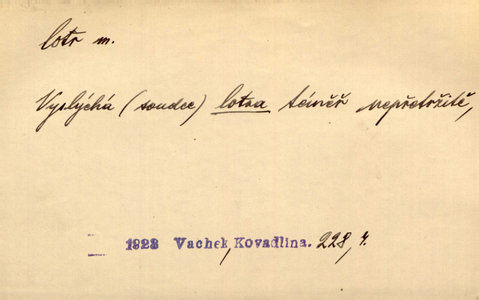 lotr m.
Vyslýchá (soudce) lotra téměř nepřetržitě,
1923 Vachek, Kovadlina. 228, 4.